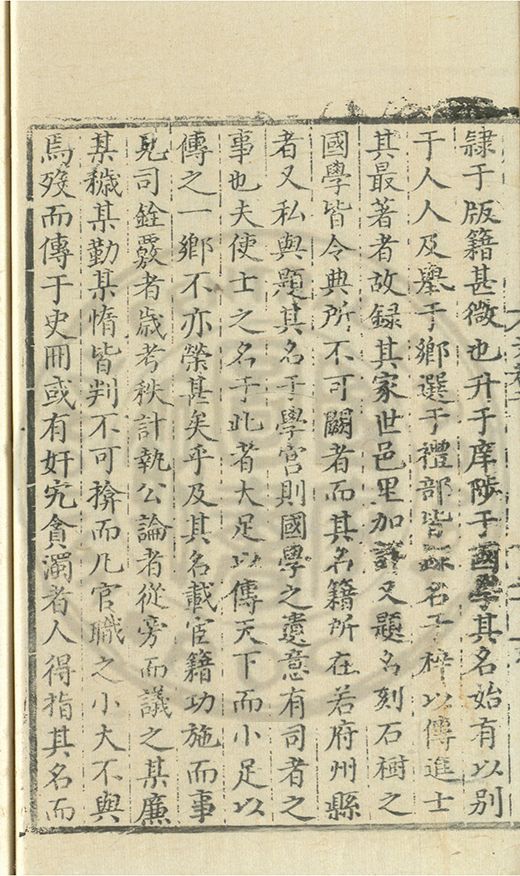 隸于版籍甚微也升于庠陟于國學其名始有以別
于人人及舉于鄉選于禮部皆名于梓以傳進士
其最著者故録其家世邑里加詳又題名刻石樹之
國學皆令典所不可闕者而其名籍所在若府州縣
者又私與題其名于學宮則國學之遺意有司者之
事也夫使士之名于此者大足以傳天下而小足以
傳之一鄉不亦榮甚矣乎及其名載宦籍功施而事
見司銓覈者歲考秩計執公論者從旁而議之某廉
某穢某勤某惰皆判不可揜而凡官職之小大不與
焉歿而傳于史冊或有奸宄貪濁者人得指其名而